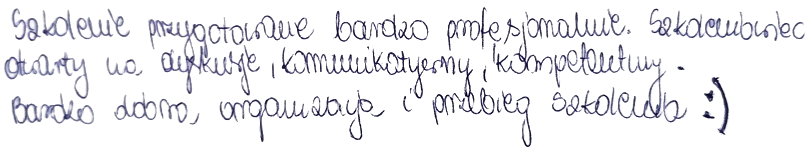 Szkolenie przygotowane bardzo profesjonalnie. Szkoleniowiec
otwarty na dyskusje, komunikatywny, kompetentny.
Bardzo dobra organizacja i przebieg szkolenia :)